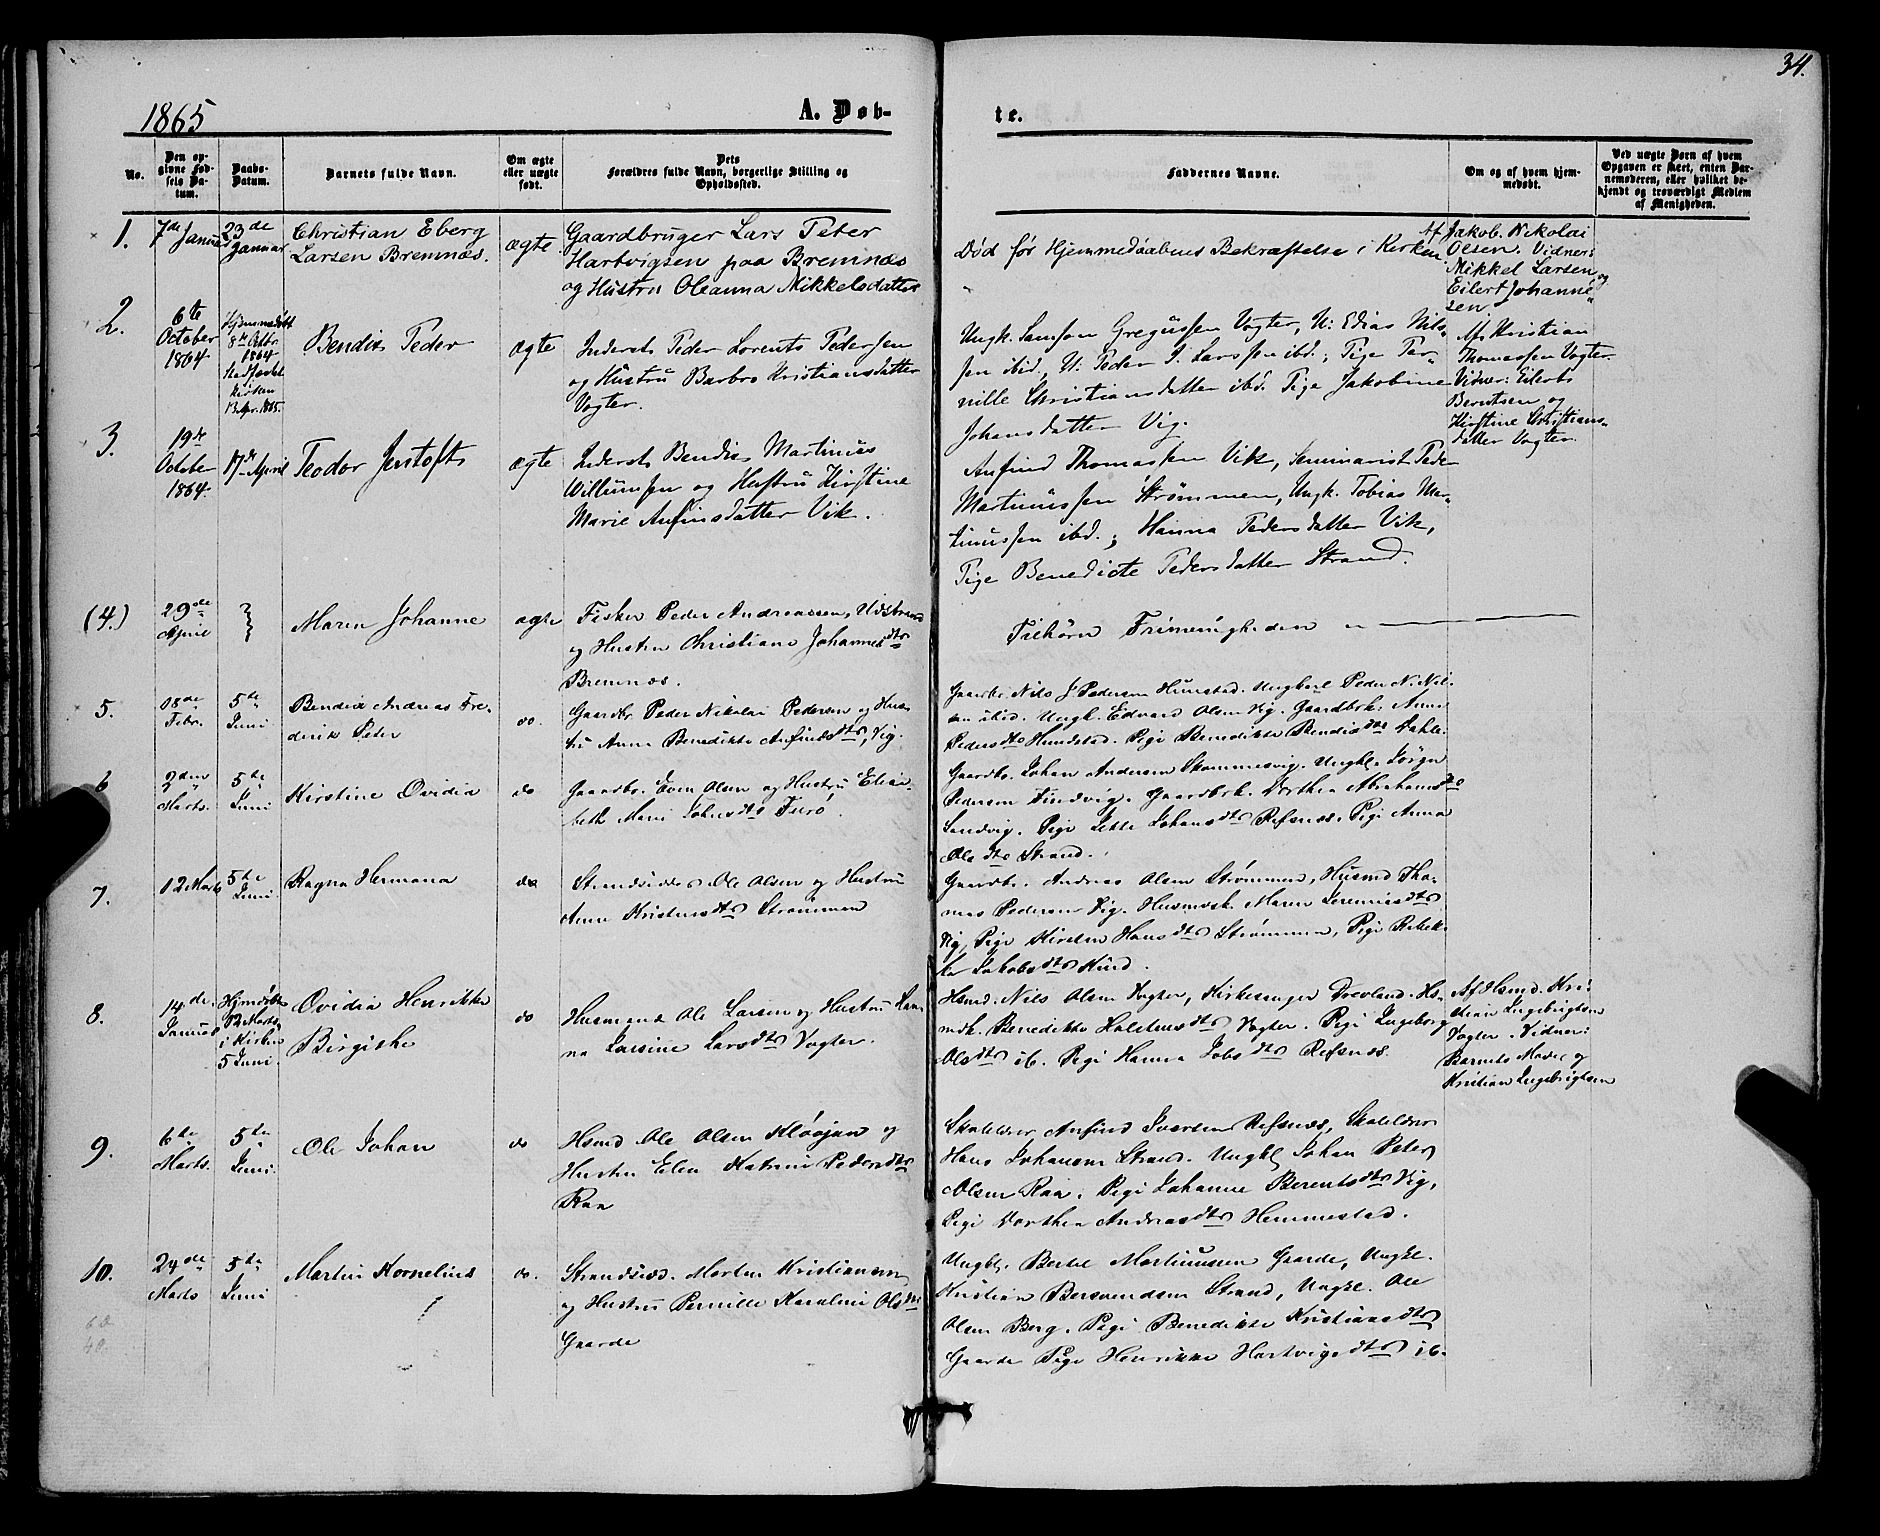 34.
1865
A. Døb-
te.
No.
Den op-
givne Fød-
sels Da-
tum.
Daabs-
Datum.
Barnets fulde Navn.
Om ægte
eller uægte
født.
Dets
Forældres fulde Navn, borgerlige Stilling og
Opholdssted.
Faddernes Navne.
Om og af hvem hjem-
medøbt.
Ved uægte Børn af hvem
Opgaven er skeet, enten Bar-
nemoderen, eller hvilket be-
kjendt og troværdigt Medlem
af Menigheden.
1.
7de Januar
23de
Januar
Christian Eberg
Larsen Bremnæs.
ægte
Gaardbruger Lars Peter
Hartvigsen paa Bremnæs
og Hustru Oleanna Mikkelsdatter
Død før Hjemmedaabens Bekræftelse i Kirken
Af Jakob Nikolai
Olsen. Vidner:
Mikkel Larsen og
Eilert Johanne-
sen
2.
6te
October
1864
Hjemmedøbt
8de Octbr.
1864
Kirken
Bendix Peder
ægte
Inderst Peder Lorents Pedersen
og Hustru Barbro Kristiansdatter
Vogter.
Ungk. Samson Gregussen Vogter, U: Edias Nils-
sen ibid., U: Peder J. Larssen ibd.; Pige Per-
nille Christiansdatter ibd. Pige Jakobine
Johansdatter Vig.
Af Kristian
Thomassen Vogter.
Vidner: Eilert
Berntsen og
Kirstine Christians-
datter Vogter.
3.
19de
October
1864.
17de April
Teodor Jentoft
ægte
Inderst Bendix Martinus
Willumsen og Hustru Kirstine
Marie Anfinsdatter Vik.
Anfind Thomassen Vik, Seminarist Peder
Martinussen Strømmen, Ungk. Tobias Mar-
tinussen ibd.; Hanna Pedersdatter Vik,
Pige Benedicte Pedersdatter Strand.
(4.)
29de
April
Maren Johanne
ægte
Fisker Peder Andreassen,
og Hustru Christiane Johannesdtr
Bremnæs.
Tilhører Frimenigheden
5.
18de
Febr.
5te
Juni
Bendix Andreas Fre-
derik Peter
do.
Gaardbr Peder Nikolai Pedersen og Hus-
tru Anne Benedikte Anfindsdtr, Vig.
Gaardbr. Nils J Pedersen Hunstad. Ungkarl Peder N. Nil-
sen ibid. Ungk. Edvard Olsen Vig. Gaardbrk. Anne
Pedersdtr Hundstad. Pige Benedikte Bendixdtr Dahle.
6
2den
Marts.
5te
Juni
Kirstine Ovidia
do
Gaardbr. Even Olsen og Hustru Elisa-
beth Marie Johnsdtr Furø.
Gaardbr. Johan Andersen Skommesvig. Ungkl. Jørgn
Pedersen Sandvig. Gaardbrk. Dorthea Abrahamsdtr
Sandvig. Pige Jette Johansdtr Refsnæs. Pige Anna
Olsdtr Strand.
7.
12 Marts
5te
Juni
Ragna Hermana
do
Strandsidder Ole Olsen og Hustru
Anne Kristensdtr Strømmen
Gaardbr. Andreas Olsen Strømmen, Husmd Tho-
mas Pedersen Vig. Husmdsk. Maren Jeremiasdtr
Vig, Pige Kirsten Hansdtr Strømmen, Pige Rebek-
ka Jakobsdtr Kind.
8.
14de
Januar
Hjmdøbt
12 Marts
i Kirken
5 Juni
Ovidia Henrikke
Birgithe
do
Husmand Ole Larsen og Hustru Han-
na Larsine Larsdtr Vogter.
Hsmd. Nils Olsen Vogter, Kirkesanger Drevland. Hs-
mdk. Benedikte Holstensdtr Vogter. Pige Ingeborg
Olsdtr ib. Pige Hanna Jobsdtr Refsnæs.
Af Hsmd. Kri-
stian Ingebrigtsen
Vogter. Vidner:
Barnets Moder og
Kristian Ingebrigtsen
9.
6te
Marts.
5te
Juni.
Ole Johan
do
Hsmd Ole Olsen Kløvjan og
Hustru Elen Katrine Pedersdtr
Raa
Skolelærer Anfind Ivarsen Refsnæs, Skolelærer
Hans Johansen Strand. Ungkl Johan Peter
Olsen Raa. Pige Johanne Berentsdtr Vig,
Pige Dorthea Andreasdtr Hemmestad.
10.
24de
Marts
5te
Juni
Martin Kornelius
do.
Strandsidd. Morten Kristiansen
og Hustru Pernille Karoline Olsdtr
Gaarde
Ungkl. Bertel Martinussen Gaarde, Ungkl.
Kristian Bersvendsen Strand, Ungkl. Ole
Olsen Borg. Pige Benedikte Kristiansdtr
Gaarde Pige Henrikke Hartvigsdtr ib.